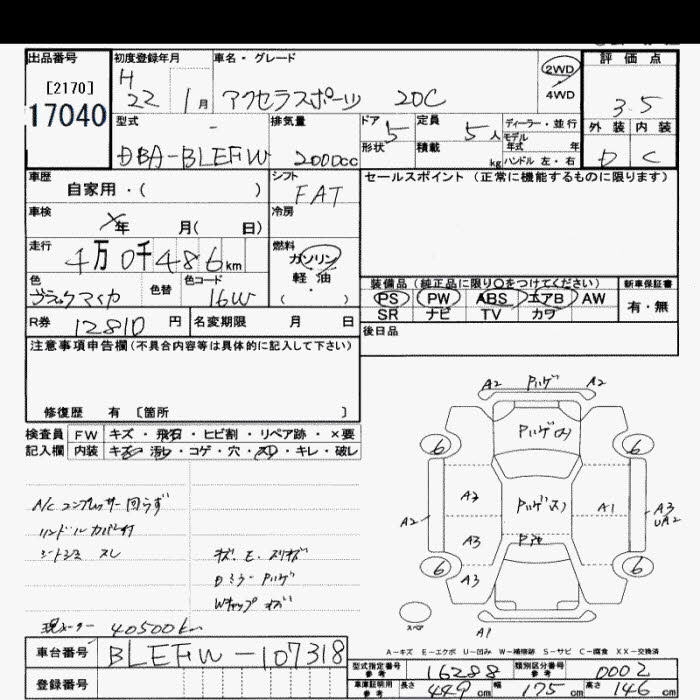 出品番号 初度登録年月 車名・グレード 2WD 4WD 評価点
[2170]
17040
H 22 1月 アクセラスポーツ 20C 3.5
型式 排気量 ドア 5 定員 5人 ディーラー・並行 外装 内装
形状 積載 kg モデル年式 年 ハンドル 左・右
DBA-BLEFW 2000cc D C
車歴 自家用・( ) シフト FAT セールスポイント(正常に機能するものに限ります)
車検 年 月( 日) 冷房
走行 4万0千486km 燃料 ガソリン 軽油 ・ ( )
色 ブラックマイカ 色替 色コード 16W
装備品(純正品に限り○をつけてください) 新車保証書
PS PW ABS エアB AW 有・無
SR ナビ TV カワ
R券 12810円 名変期限 月 日 後日品
注意事項申告欄(不具合内容等は具体的に記入して下さい)
修復歴 有 [箇所 ]
検査員 FW キズ・飛石・ヒビ割・リペア跡・×要
記入欄 内装 キズ・汚レ・コゲ・穴・スレ・キレ・破レ
A/Cコンプレッサー回らず
ハンドルカバー付
シートシミ スレ
キズ.E.スリキズ
Dミラー Pハゲ
Wキャップ キズ
現メーター 40500km
A2 Pハゲ A2
6 Pハゲ 6
A2 A2 A1 A3 UA2
A3
6 A3 6
スペア A1
A-キズ E-エクボ U-凹み W-補修跡 S-サビ C-腐食 XX-交換済
車台番号 BLEFW-107318
登録番号
型式指定番号 参考 16288 類別区分番号 参考 0002
車庫証明用 参考 長さ 449cm 幅 175cm 高さ 146cm